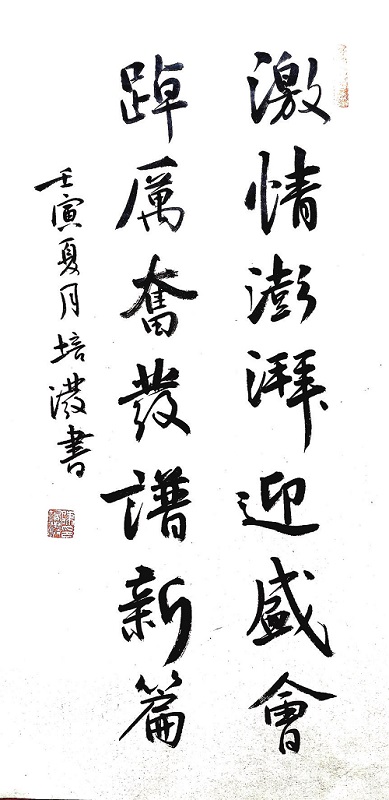 激情澎湃迎盛會
踔厲奮發譜新篇
壬寅夏月培澂書